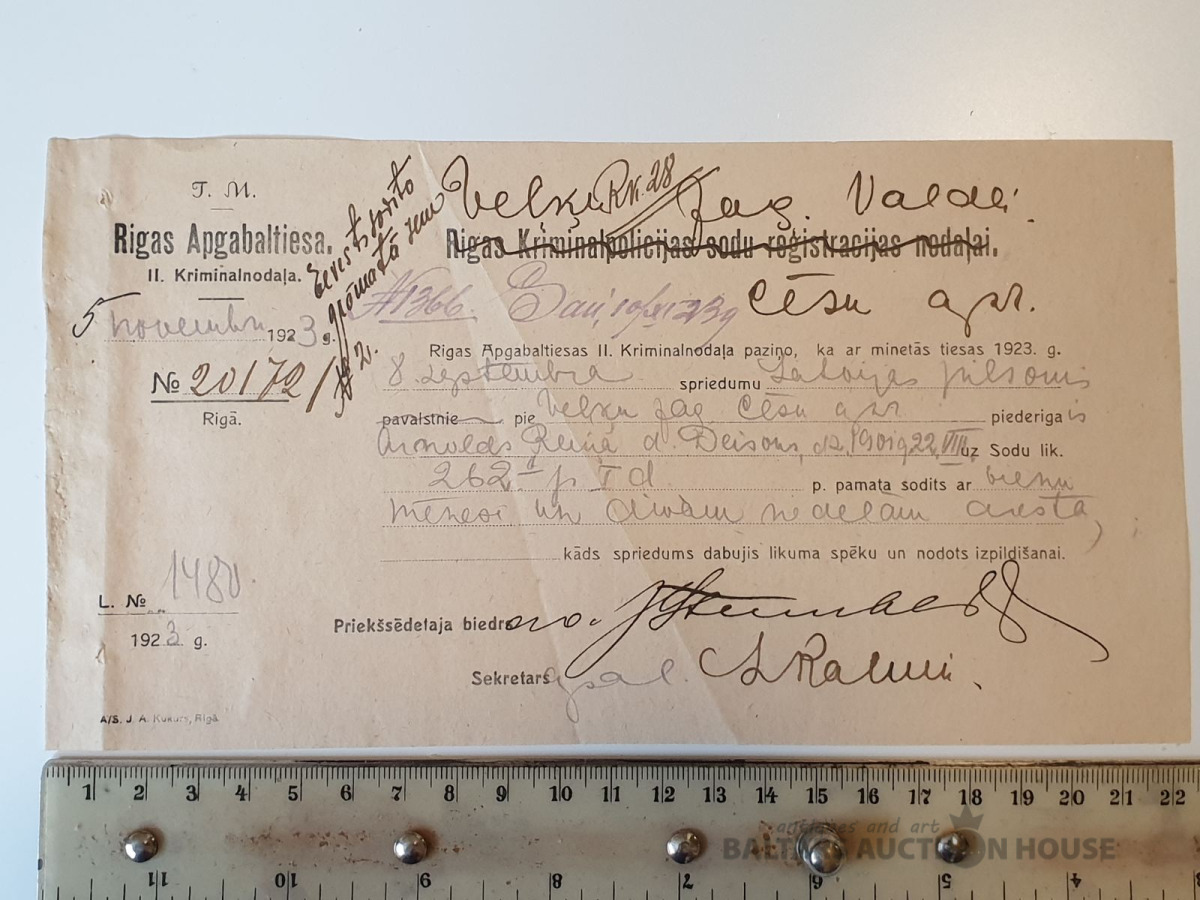 T. M.
Rigas Apgabaltiesa.
II. Kriminalnodaļa.
5 novembri 1923 g.
№ 20172/
Rigā.
L. № 1480.
1923 g.
A/S. J. A. Kukurs, Rigā
Eevests sodīto
grāmatā zem
№ 2.
Veļķu pag. Valdei.
RN. 28
Rigas Kriminalpolicijas sodu reģistracijas nodaļai.
№1366. Saņ. Cēsu apr.
Rigas Apgabaltiesas II. Kriminalnodaļa paziņo, ka ar minetās tiesas 1923. g.
8. septembra spriedumu Latvijas pilsonis
pavalstnie pie Veļķu pag. Cēsu apr. piederiga is
Arnolds Reiņa d. Deisons, dz. 1901 g 22. VIII uz Sodu lik.
262 p I d p. pamata sodits ar vienu
mēnesi un divām nedēļām aresta,
kāds spriedums dabujis likuma spēku un nodots izpildišanai.
Priekšsēdetaja biedrs
Sekretars pal.
1 2 3 4 5 6 7 8 9 10 11 12 13 14 15 16 17 18 19 20 21 22
antiques and art
BALTIC AUCTION HOUSE
11 10 9 8 7 6 5 4